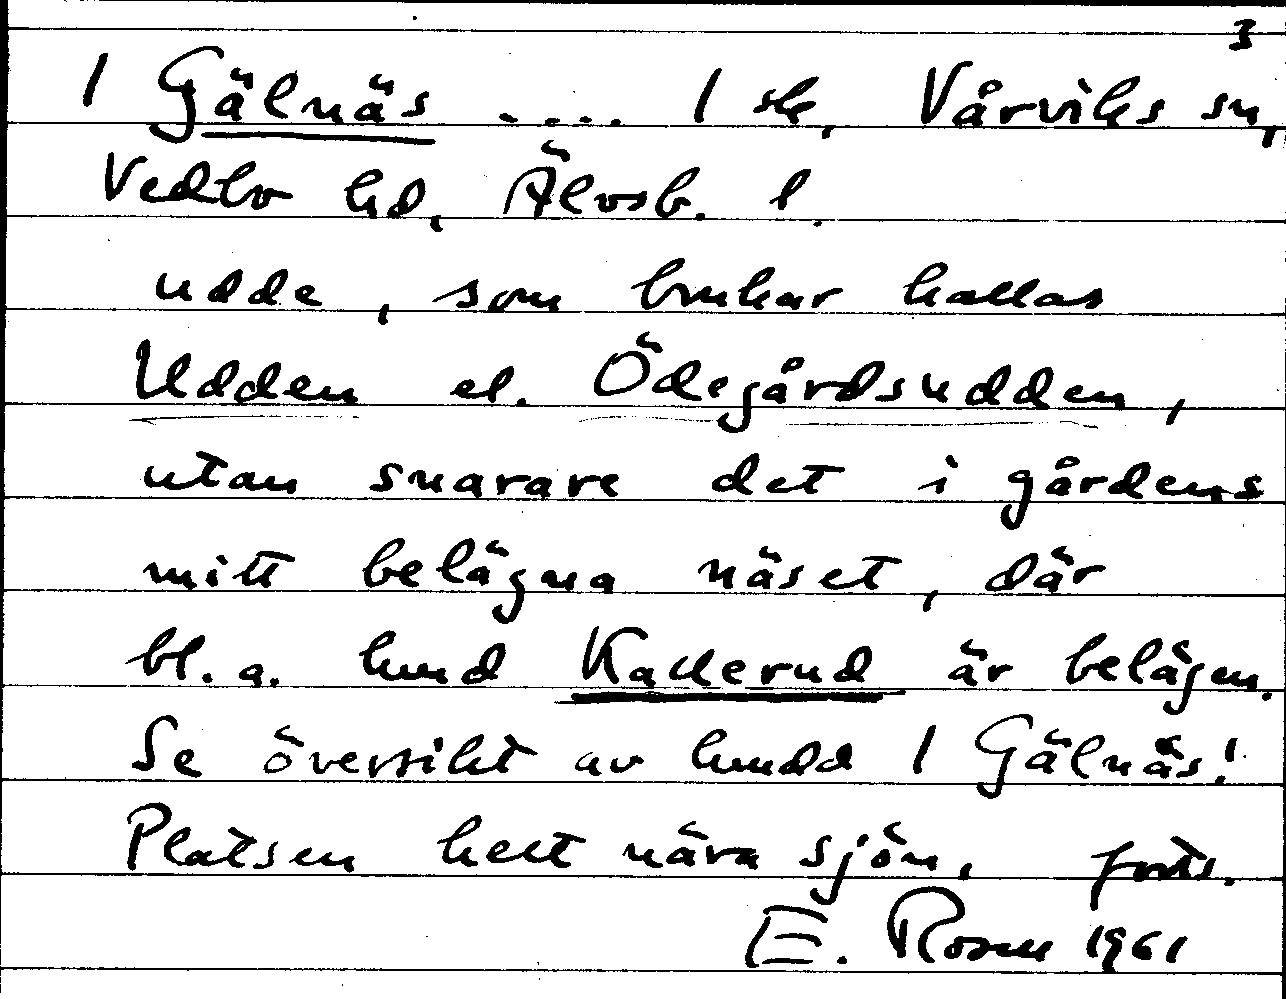 3
1 Gälnäs .... 1 sk, Vårviks sn,
Vedbo hd, Älvsb. l.
udde, som brukar kallas
Udden el. Ödegårdsudden,
utan snarare det i gårdens
mitt belägna näset, där
bl. a. hmd Kallerud är belägen.
Se översikt av hmdd 1 Gälnäs!
Platsen helt nära sjön, forts.
E. Rosell 1961